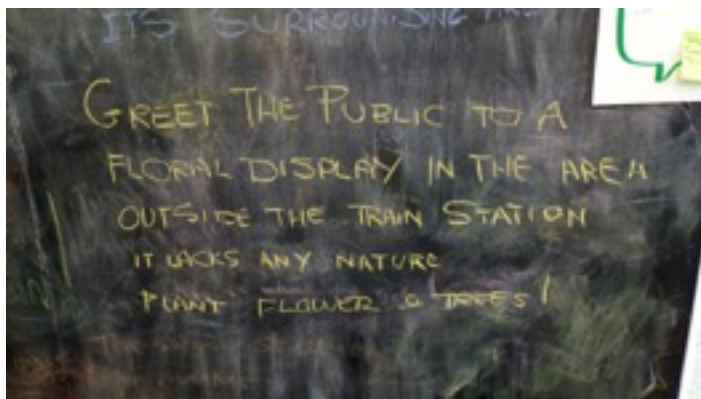 ITS SURROUNDING
GREET THE PUBLIC TO A
FLORAL DISPLAY IN THE AREA
OUTSIDE THE TRAIN STATION
IT LACKS ANY NATURE
PLANT FLOWER & TREES!